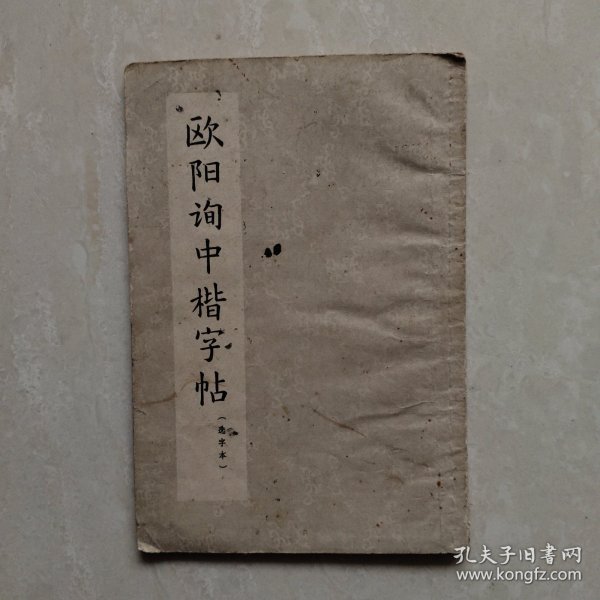 欧阳询中楷字帖
（选字本）
孔夫子旧書网
www.kongfz.com